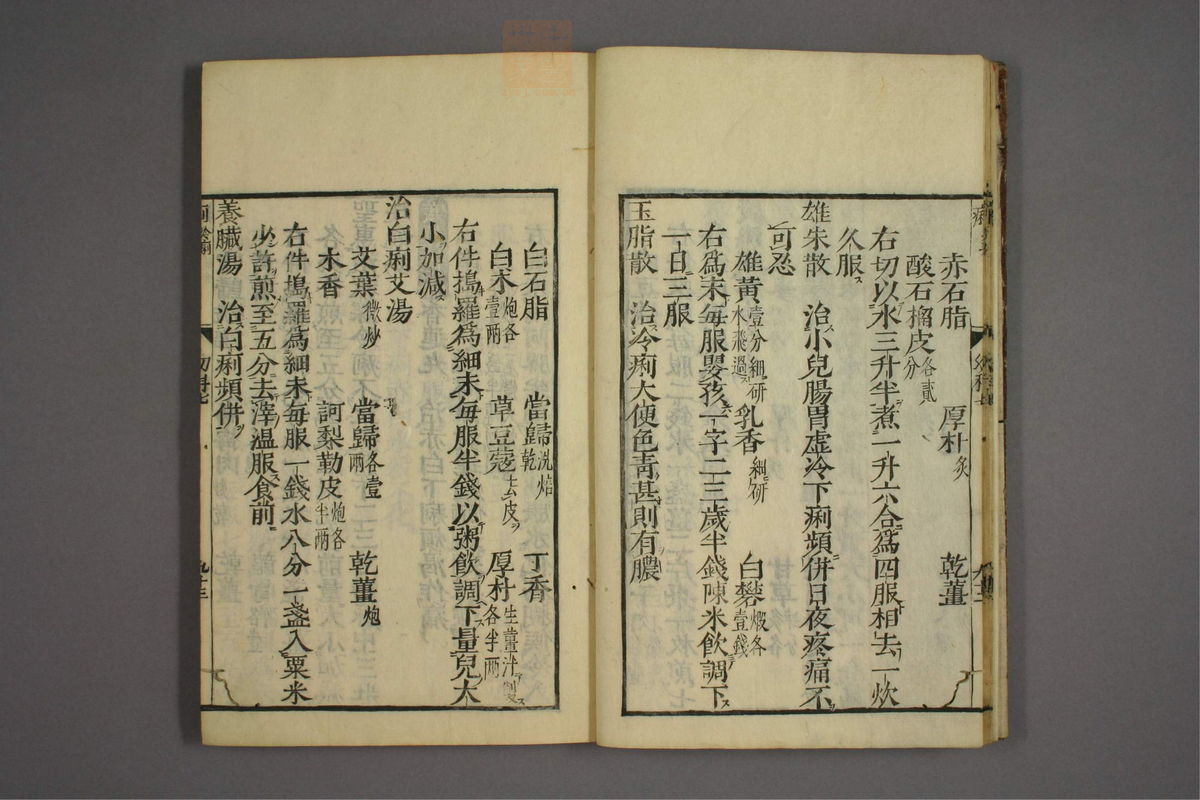 赤石脂 厚朴炙 乾薑
酸石榴皮各貳分
右切以水三升半煮一升六合爲四服相去一炊
久服
雄朱散 治小兒腸胃虚冷下痢頻併日夜疼痛不
可忍
雄黃壹分細研水飛過 乳香細研 白礬煆各壹錢
右爲末每服嬰孩一字二三歲半錢陳米飲調下
一日三服
玉脂散 治冷痢大便色青甚則有膿
白石脂 當歸洗焙乾 丁香
白朮炮各壹兩 草豆蔻去皮 厚朴生薑汁製各半兩
右件搗羅爲細末每服半錢以粥飲調下量兒大
小加減
治白痢艾湯
艾葉微炒 當歸各壹兩 乾薑炮
木香 訶梨勒皮炮各半兩
右件搗羅爲細末每服一錢水八分一盞入粟米
少許煎至五分去滓温服食前
養臟湯 治白痢頻併